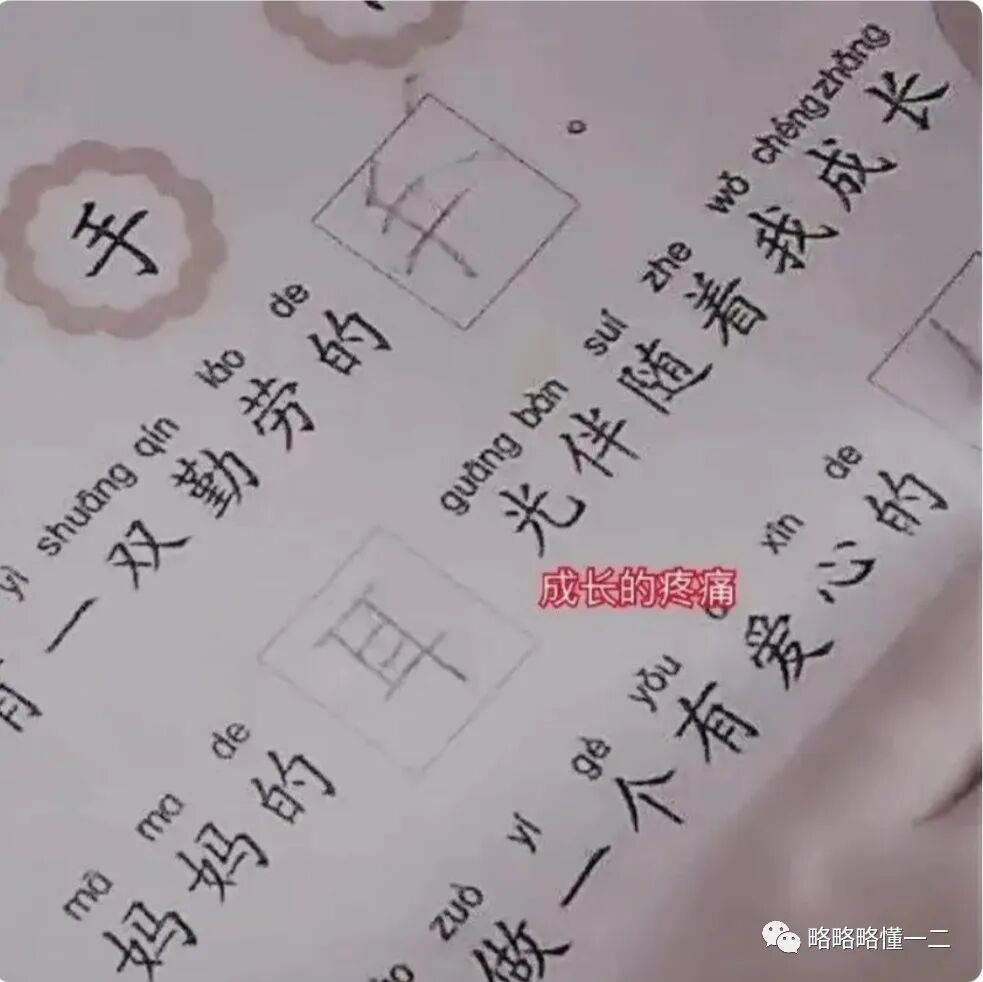 手
yì shuāng qín láo de
有一双勤劳的手。
mā ma de guāng bàn suí zhe wǒ chéng zhǎng
妈妈的耳光伴随着我成长
zuò yí gè yǒu xīn de
做一个有爱心的
成长的疼痛
略略略懂一二